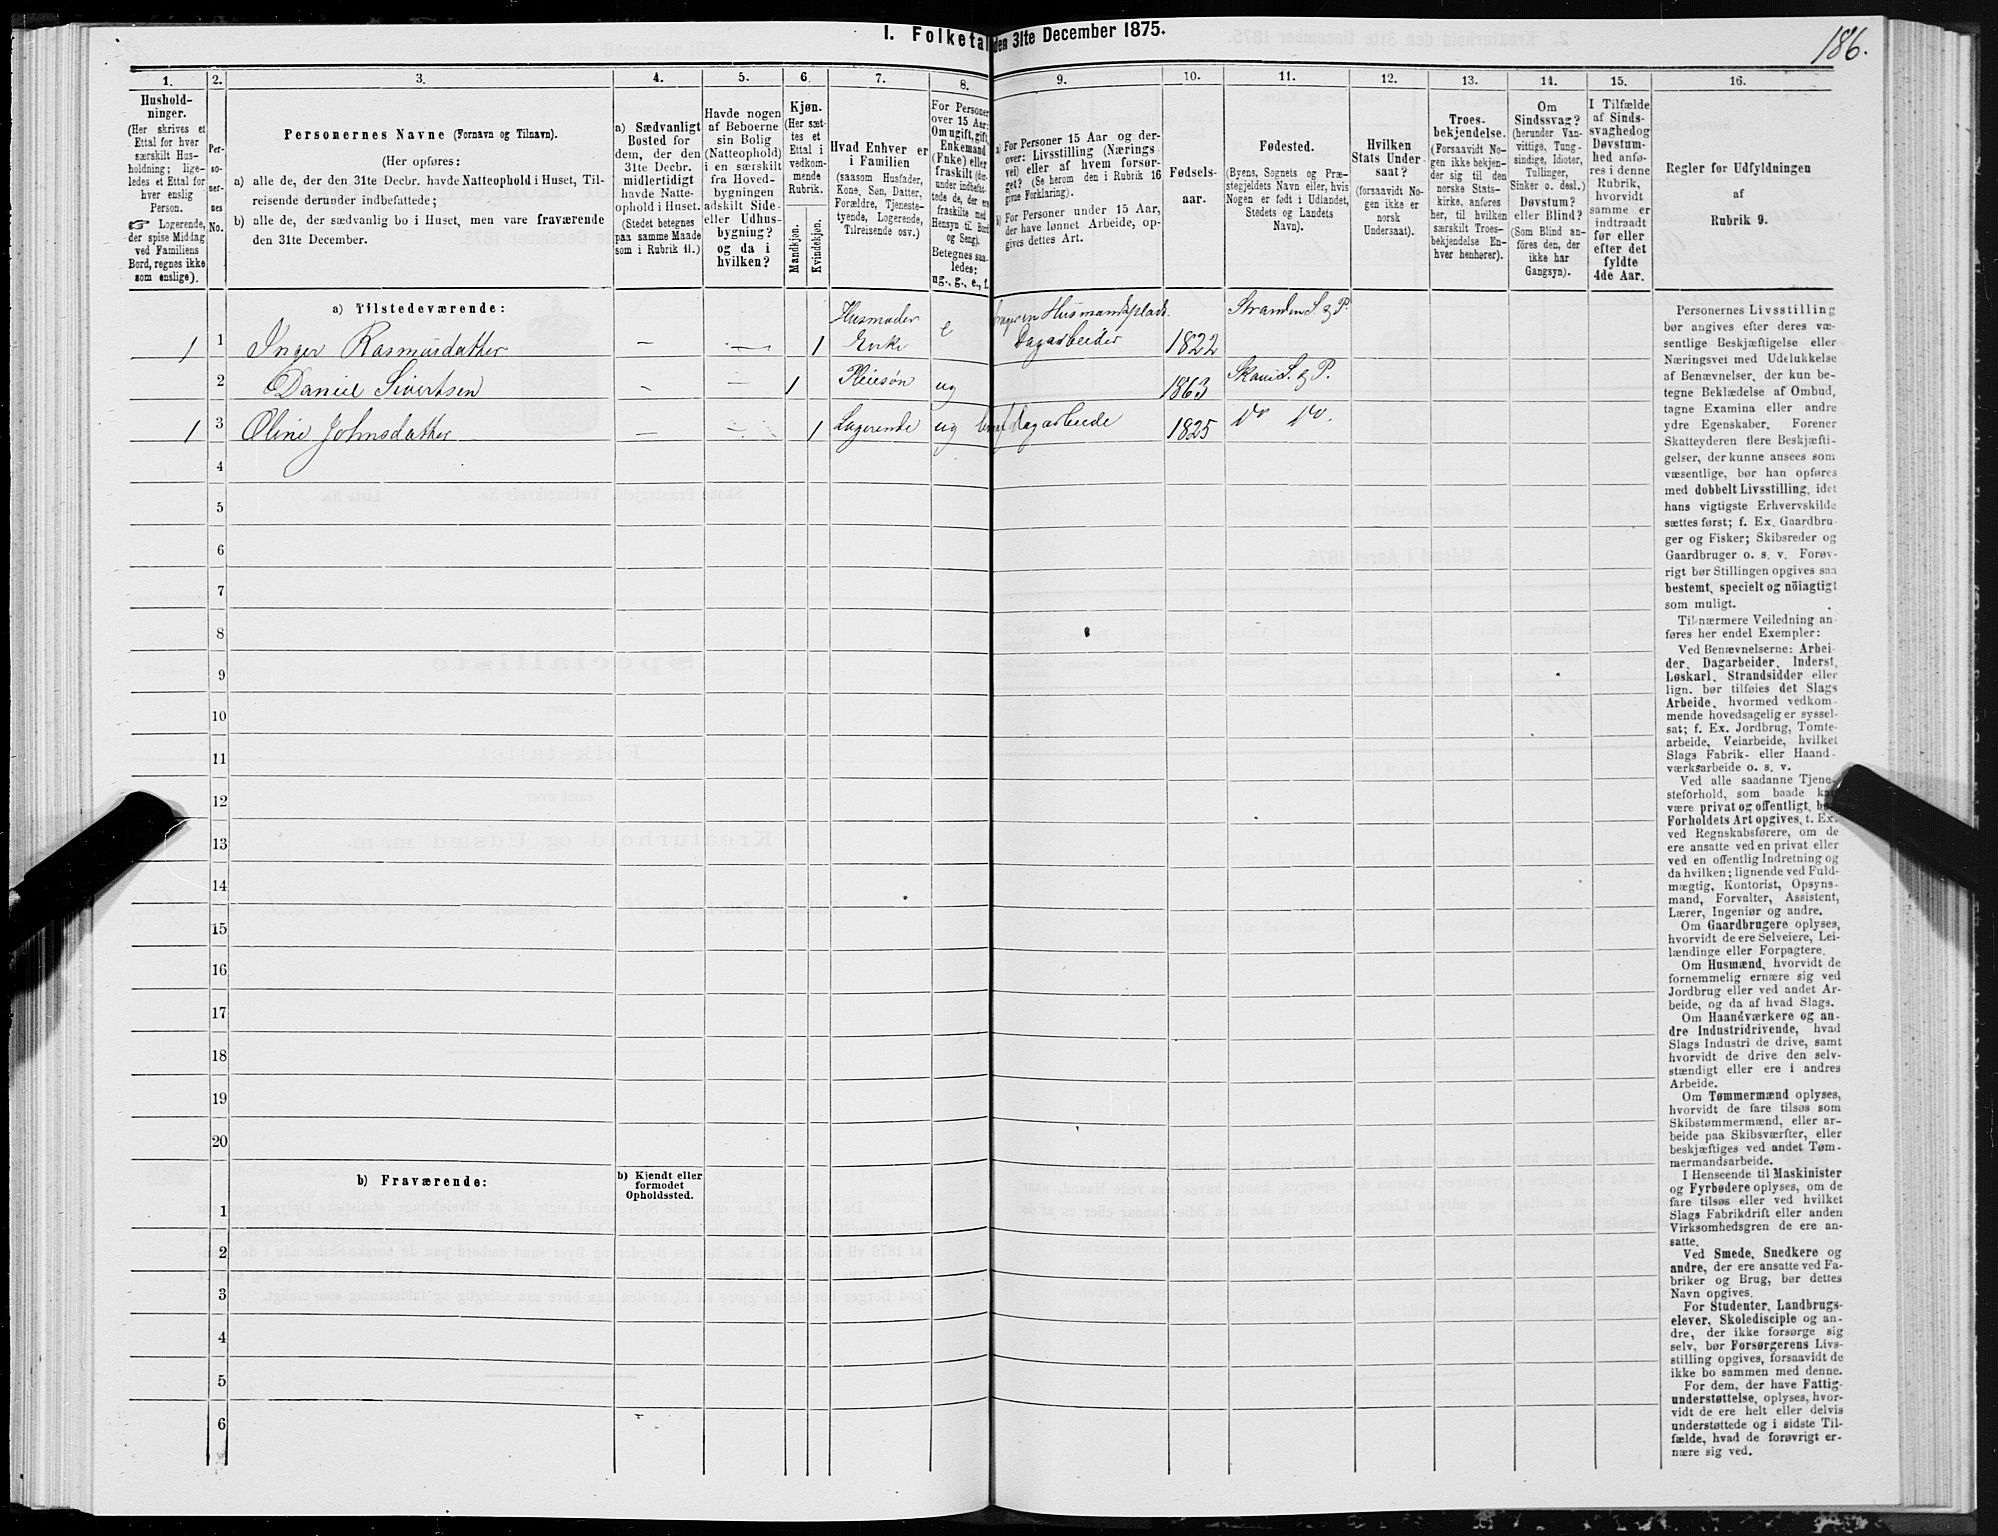 I. Folketal den 31te December 1875.
186.
1. 2. 3. 4. 5. 6. 7. 8. 9. 10. 11. 12. 13. 14. 15. 16.
Hushold-
ninger.
(Her skrives et
Ettal for hver
særskilt Hus-
holdning; lige-
ledes et Ettal for
hver enslig
Person.
☞ Logerende,
der spise Middag
ved Familiens
Bord, regnes ikke
som enslige).
Per-
so-
ner-
nes
No.
Personernes Navne (Fornavn og Tilnavn).
(Her opføres:
a) alle de, der den 31te Decbr. havde Natteophold i Huset, Til-
reisende derunder indbefattede;
b) alle de, der sædvanlig bo i Huset, men vare fraværende
den 31te December.
a) Sædvanligt
Bosted for
dem, der den
31te Decbr.
midlertidigt
havde Natte-
ophold i Huset.
(Stedet betegnes
paa samme Maade
som i Rubrik 11.)
Havde nogen
af Beboerne
sin Bolig
(Natteophold)
i en særskilt
fra Hoved-
bygningen
adskilt Side-
eller Udhus-
bygning?
og da i
hvilken?
Kjøn.
(Her sæt-
tes et
Ettal i
vedkom-
mende
Rubrik.
Mandkjøn.
Kvindekjøn.
Hvad Enhver er
i Familien
(saasom Husfader,
Kone, Søn, Datter,
Forældre, Tjeneste-
tyende, Logerende,
Tilreisende osv.)
For Personer
over 15 Aar:
Om ugift, gift,
Enkemand
(Enke) eller
fraskilt (der-
under indbefat-
tede de, der ere
fraskilte med
Hensyn til Bord
og Seng).
Betegnes saa-
ledes:
ug., g., e., f.
a) For Personer 15 Aar og der-
over: Livsstilling (Nærings-
vei) eller af hvem forsør-
get? (Se herom den i Rubrik 16
givne Forklaring).
b) For Personer under 15 Aar,
der have lønnet Arbeide, op-
gives dettes Art.
Fødsels-
aar.
Fødested.
(Byens, Sognets og Præ-
stegjeldets Navn, eller, hvis
Nogen er født i Udlandet,
Stedets og Landets
Navn).
Hvilken
Stats Under-
saat?
(forsaavidt No-
gen ikke er
norsk
Undersaat).
Troes-
bekjendelse.
(Forsaavidt No-
gen ikke bekjen-
der sig til den
norske Stats-
kirke, anføres
her, til hvilken
særskilt Troes-
bekjendelse En-
hver henhører).
Om
Sindssvag?
(herunder Van-
vittige, Tung-
sindige, Idioter,
Tullinger,
Sinker o. desl.)
Døvstum?
eller Blind?
(Som Blind an-
føres den, der
ikke har
Gangsyn).
I Tilfælde
af Sinds-
svaghed og
Døvstum-
hed anfø-
res i denne
Rubrik,
hvorvidt
samme er
indtraadt
før eller
efter det
fyldte
4de Aar.
Regler for Udfyldningen
af
Rubrik 9.
a) Tilstedeværende:
1 1 Inger Rasmusdatter — — 1 Husmoder Enke e bruger en Husmandsplads. Dagarbeider 1822 Stranden S. & P.
2 Daniel Sivertsen — — 1 Pleiesøn ug 1863 Skaui S. & P.
1 3 Oline Johnsdatter — — 1 Logerende ug Dagarbeide 1825 Do Do.
4
5
6
7
8
9
10
11
12
13
14
15
16
17
18
19
20
b) Fraværende:
b) Kjendt eller
formodet
Opholdssted.
1
2
3
4
5
6
Personernes Livsstilling
bør angives efter deres væ-
sentlige Beskjæftigelse eller
Næringsvei med Udelukkelse
af Benævnelser, der kun be-
tegne Beklædelse af Ombud,
tagne Examina eller andre
ydre Egenskaber. Forener
Skatteyderen flere Beskjæfti-
gelser, der kunne ansees som
væsentlige, bør han opføres
med dobbelt Livsstilling, idet
hans vigtigste Erhvervskilde
sættes først; f. Ex. Gaardbru-
ger og Fisker; Skibsreder og
Gaardbruger o. s. v. Forøv-
rigt bør Stillingen opgives saa
bestemt, specielt og nöiagtigt
som muligt.
Til nærmere Veiledning an-
føres her endel Exempler:
Ved Benævnelserne: Arbei-
der, Dagarbeider, Inderst,
Løskarl, Strandsidder eller
lign. bør tilføies det Slags
Arbeide, hvormed vedkom-
mende hovedsagelig er syssel-
sat; f. Ex. Jordbrug, Tomte-
arbeide, Veiarbeide, hvilket
Slags Fabrik- eller Haand-
værksarbeide o. s. v.
Ved alle saadanne Tjene-
steforhold, som baade kan
være privat og offentligt, bør
Forholdets Art opgives, t. Ex.
ved Regnskabsførere, om de
ere ansatte ved en privat eller
ved en offentlig Indretning og
da hvilken; lignende ved Fuld-
mægtig, Kontorist, Opsyns-
mand, Forvalter, Assistent,
Lærer, Ingeniør og andre.
Om Gaardbrugere oplyses,
hvorvidt de ere Selveiere, Lei-
lændinge eller Forpagtere.
Om Husmænd, hvorvidt de
fornemmelig ernære sig ved
Jordbrug eller ved andet Ar-
beide, og da af hvad Slags.
Om Haandværkere og an-
dre Industridrivende, hvad
Slags Industri de drive, samt
hvorvidt de drive den selv-
stændigt eller ere i andres
Arbeide.
Om Tømmermænd oplyses,
hvorvidt de fare tilsøs som
Skibstømmermænd, eller ar-
beide paa Skibsværfter, eller
beskjæftiges ved andet Tøm-
mermandsarbeide.
I Henseende til Maskinister
og Fyrbødere oplyses, om de
fare tilsøs eller ved hvilket
Slags Fabrikdrift eller anden
Virksomhedsgren de ere an-
satte.
Ved Smede, Snedkere og
andre, der ere ansatte ved Fa-
briker og Brug, bør dettes
Navn opgives.
For Studenter, Landbrugs-
elever, Skoledisciple og an-
dre, der ikke forsørge sig
selv, bør Forsørgerens Livs-
stilling opgives, forsaavidt de
ikke bo sammen med denne.
For dem, der have Fattig-
understøttelse, oplyses, hvor-
vidt de ere helt eller delvis
understøttede og i sidste Til-
fælde, hvad de forøvrigt er-
nære sig ved.